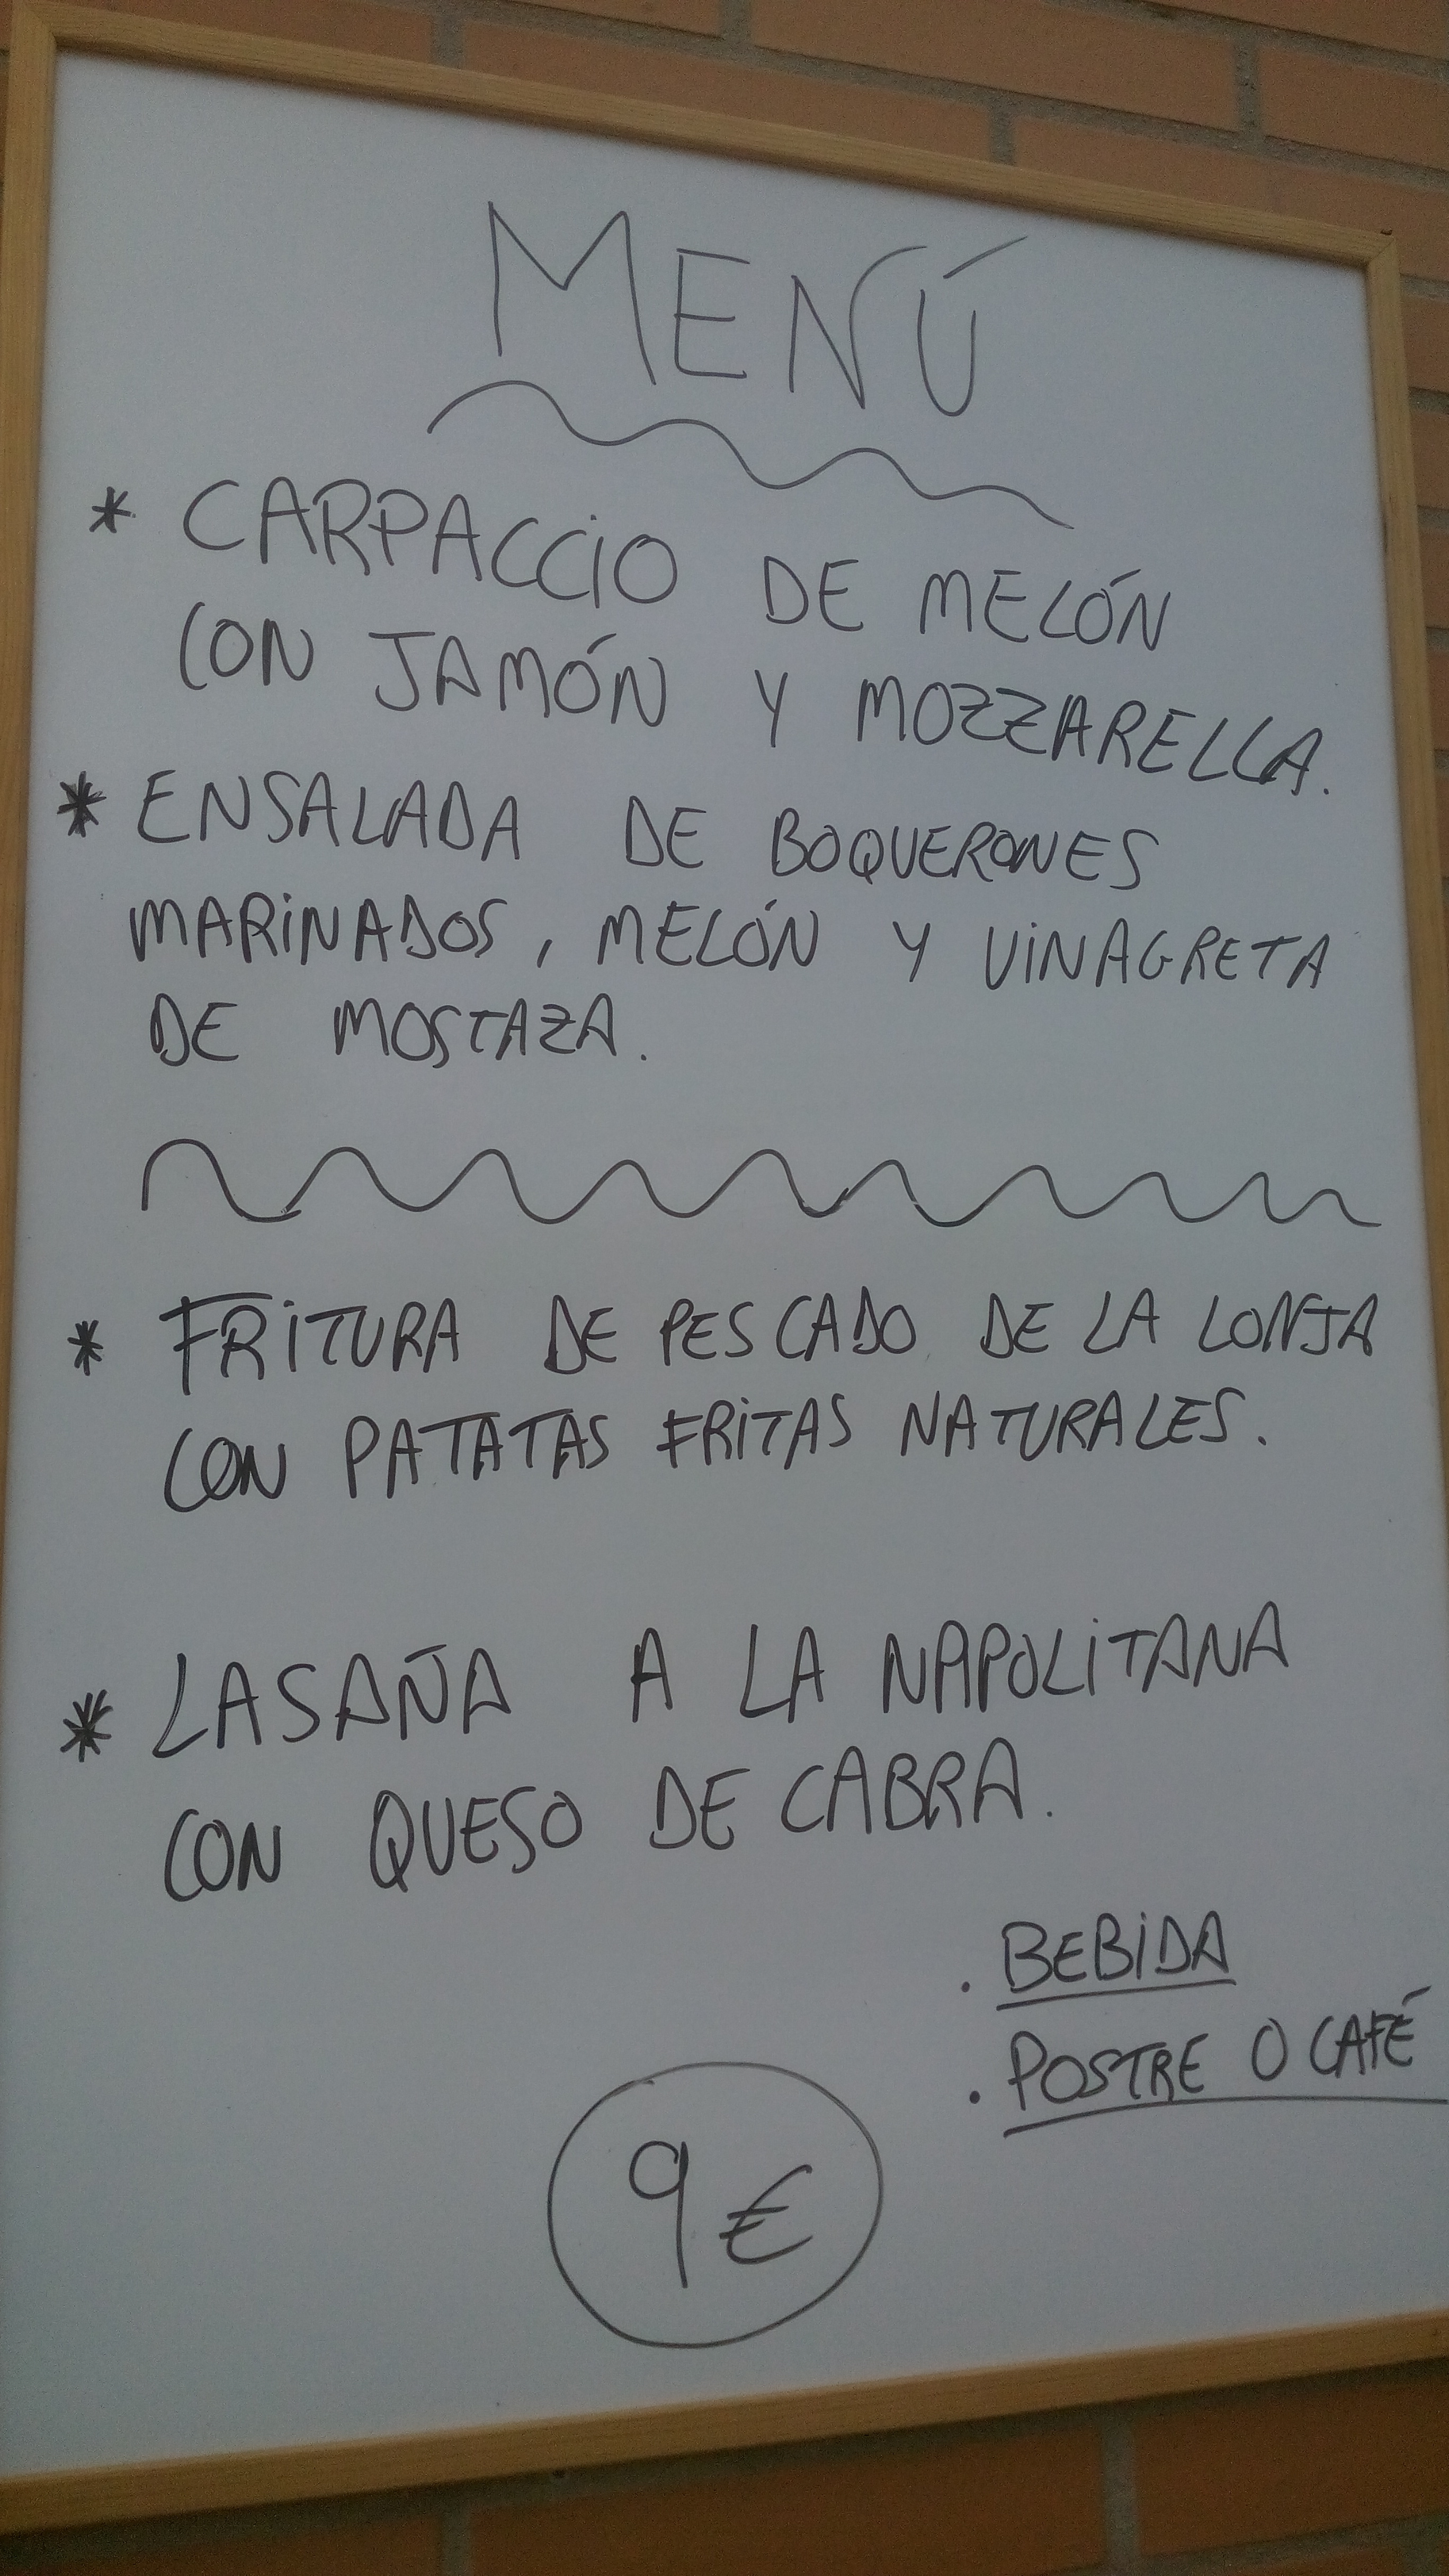 MENÚ
* CARPACCIO DE MELÓN
CON JAMÓN Y MOZZARELLA.
* ENSALADA DE BOQUERONES
MARINADOS, MELÓN Y VINAGRETA
DE MOSTAZA.
* FRITURA DE PESCADO DE LA LONJA
CON PATATAS FRITAS NATURALES.
* LASAÑA A LA NAPOLITANA
CON QUESO DE CABRA.
. BEBIDA
. POSTRE O CAFÉ
9 €